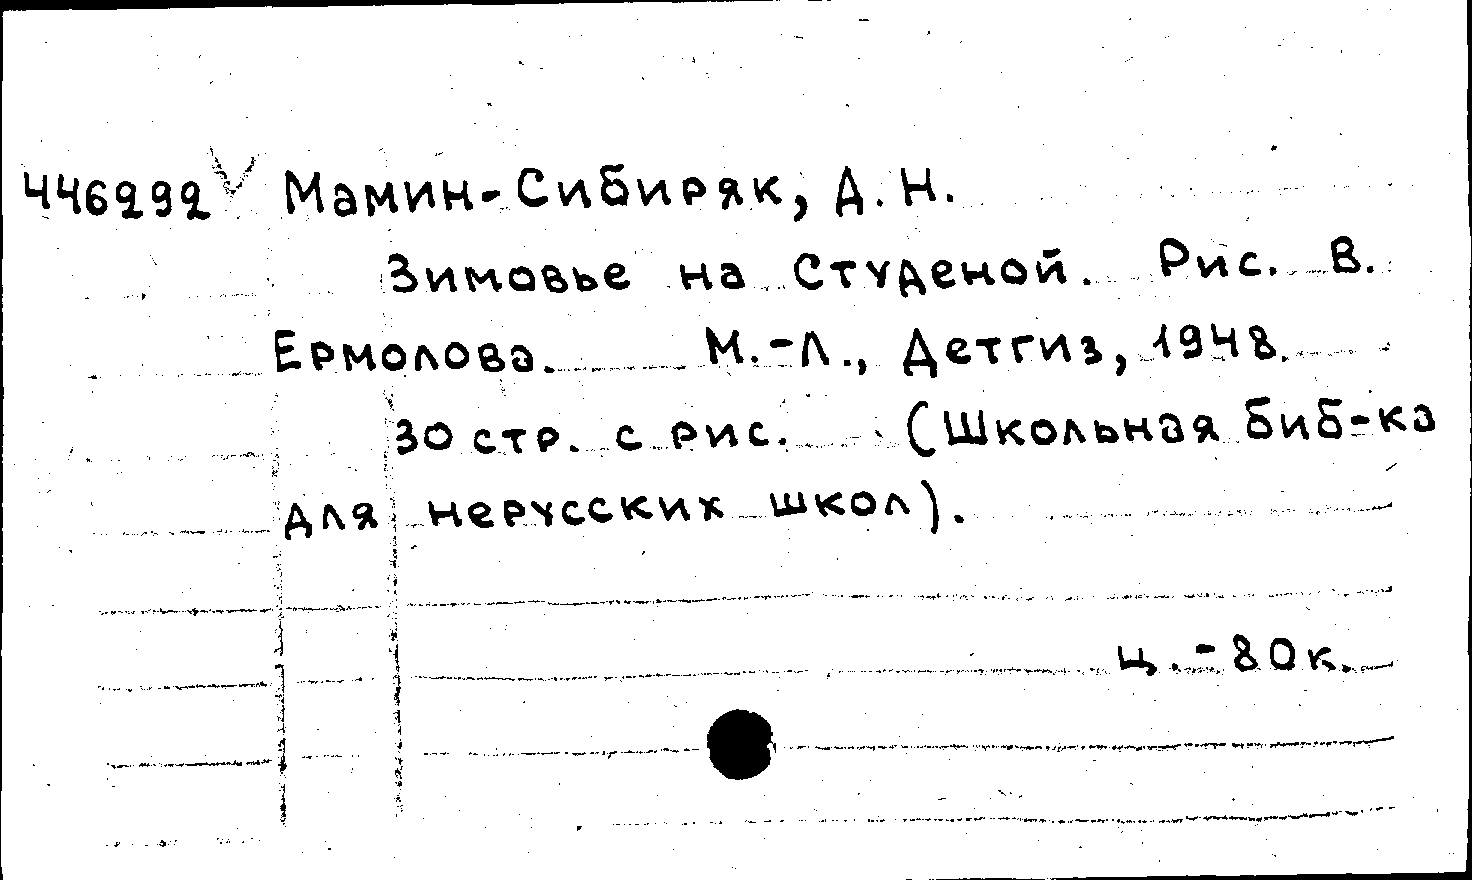 446292 V Мамин-Сибиряк, Д. Н.
Зимовье на Студеной. Рис. В.
Ермолова. М.-Л., Детгиз, 1948.
30 стр. с рис. (Школьная биб-ка
для нерусских школ).
Ц.-80к.